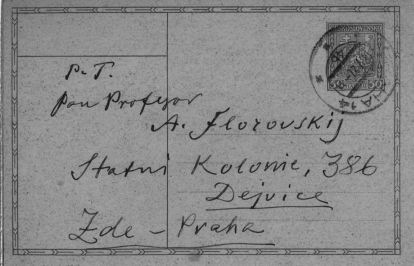 P. T.
Pan Profesor
A. Florovskij
Statni Kolonie, 386
Dejvice
Zde - Praha